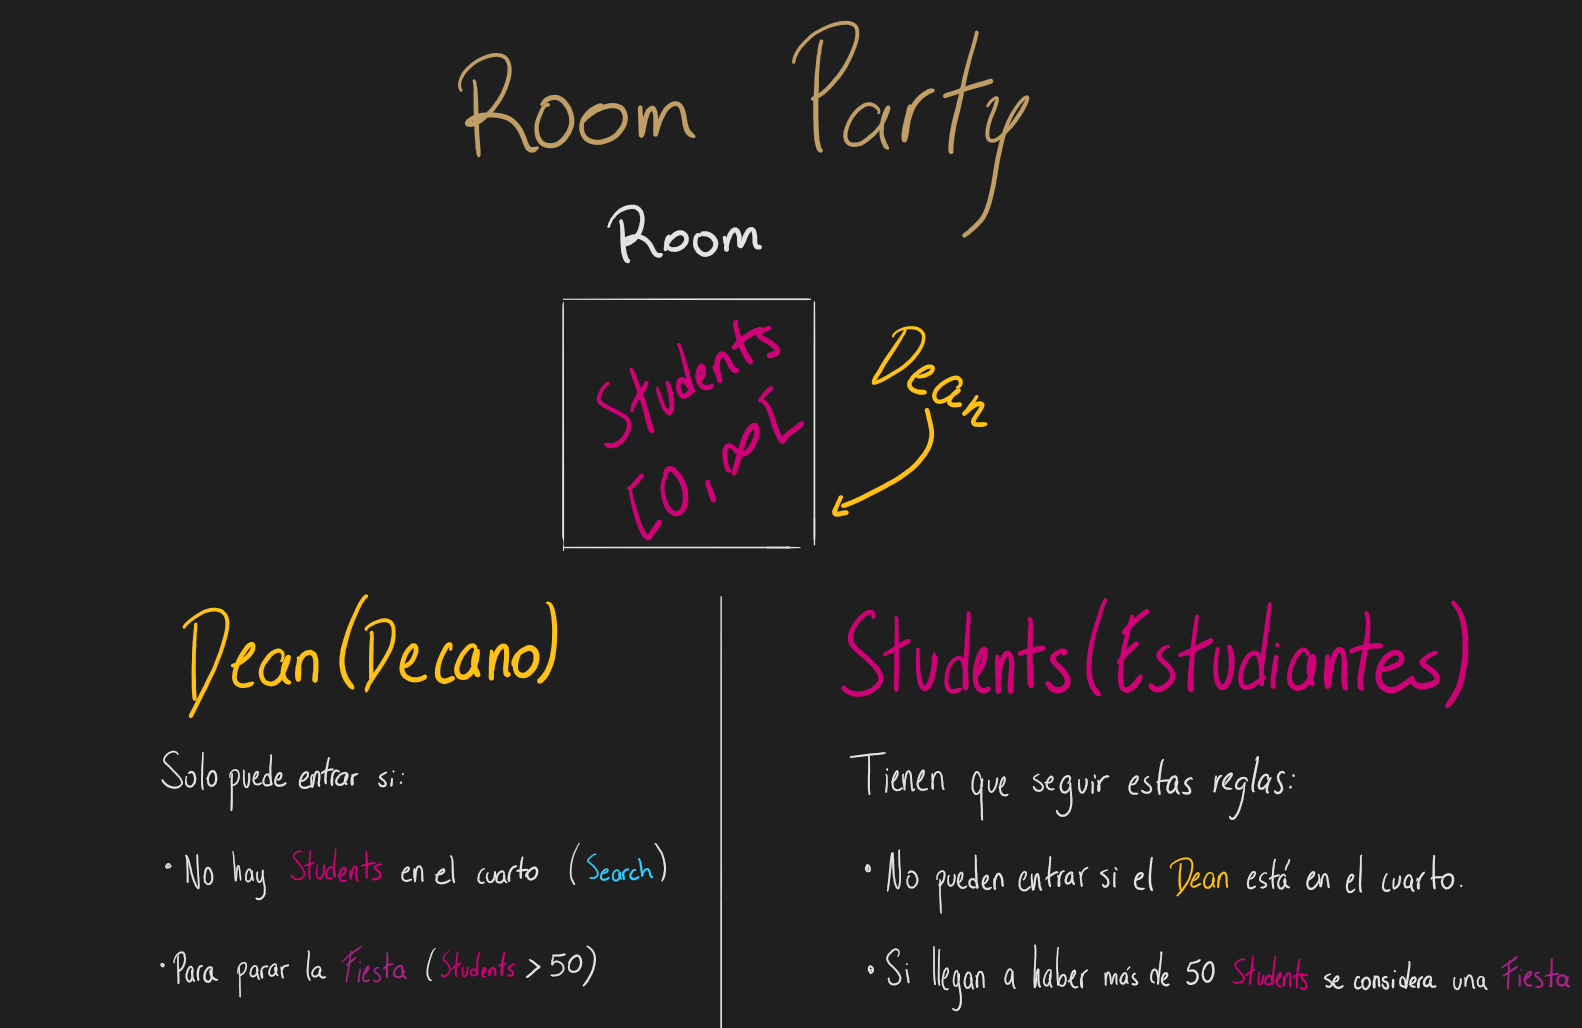 Room Party
Room
Students
[0, ∞[
Dean
Dean (Decano)
Solo puede entrar si:
• No hay Students en el cuarto (Search)
• Para parar la Fiesta (Students > 50)
Students (Estudiantes)
Tienen que seguir estas reglas:
• No pueden entrar si el Dean está en el cuarto.
• Si llegan a haber más de 50 Students se considera una Fiesta